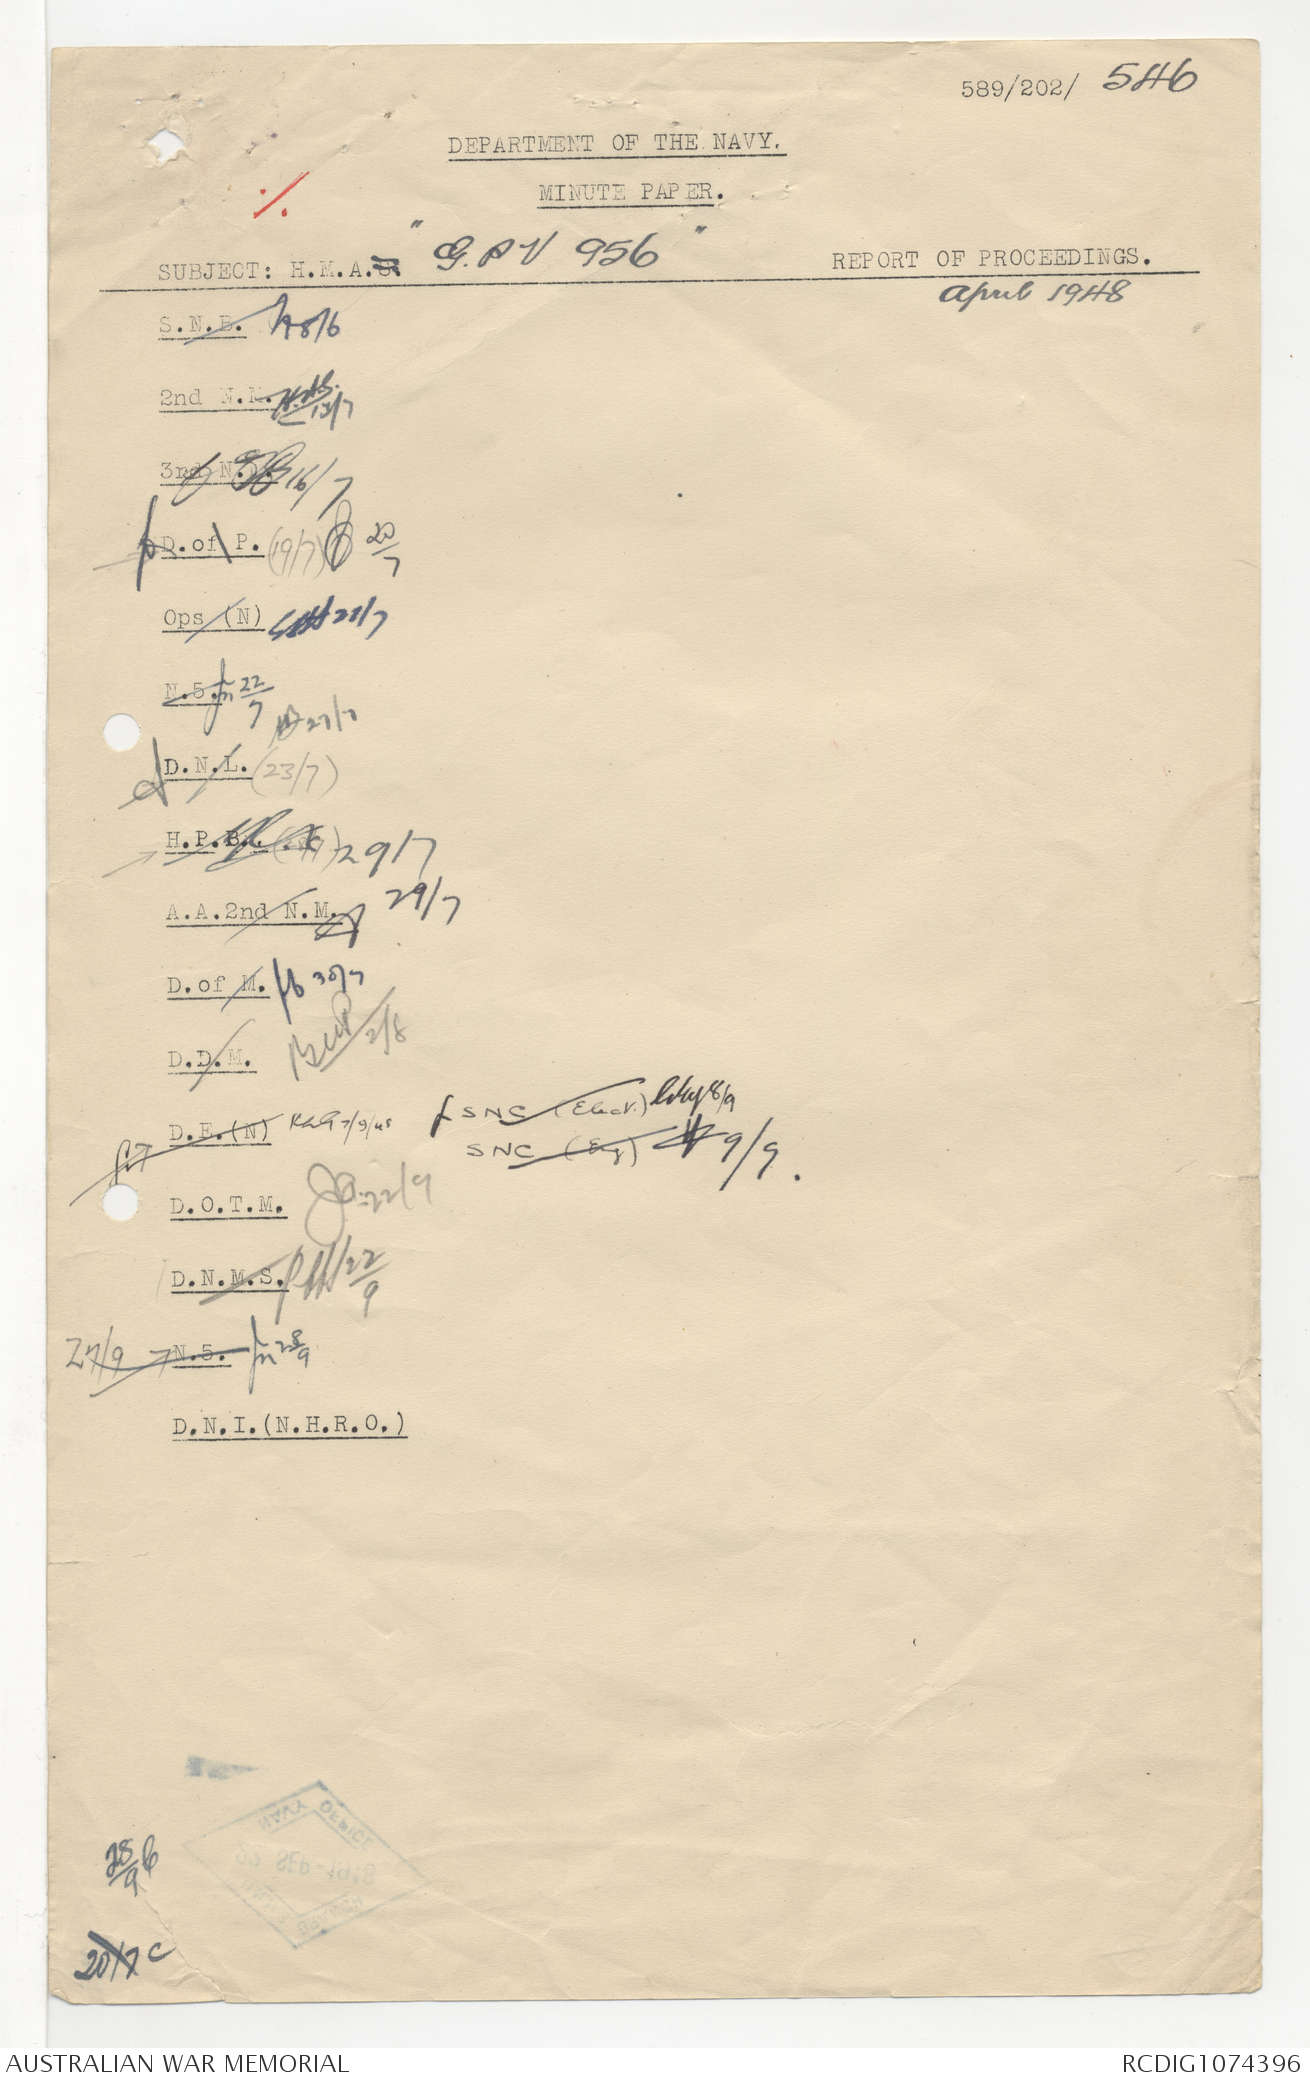 589/202/ 546
DEPARTMENT OF THE NAVY.
MINUTE PAPER.
SUBJECT: H.M.A.S. "G.P.V 956" REPORT OF PROCEEDINGS.
April 1948
S.N.B. 8/6
2nd N.M. 13/7
3rd N. 16/7
D.of P. (19/7) 20/7
Ops (N) 21/7
N.5. 22/7
27/7
D.N.L. (23/7)
H.P.B. 29/7
A.A.2nd N.M. 29/7
D.of M. 30/7
D.D.M. 2/8
D.E.(N) 7/9/48 SNC (Elect.) 8/9
SNC (Eng) 9/9.
D.O.T.M. 22/9
D.N.M.S. 22/9
27/9 N.5. 28/9
D.N.I.(N.H.R.O.)
NAVY OFFICE
SEP 1948
28/9
20/7 C
AUSTRALIAN WAR MEMORIAL RCDIG1074396